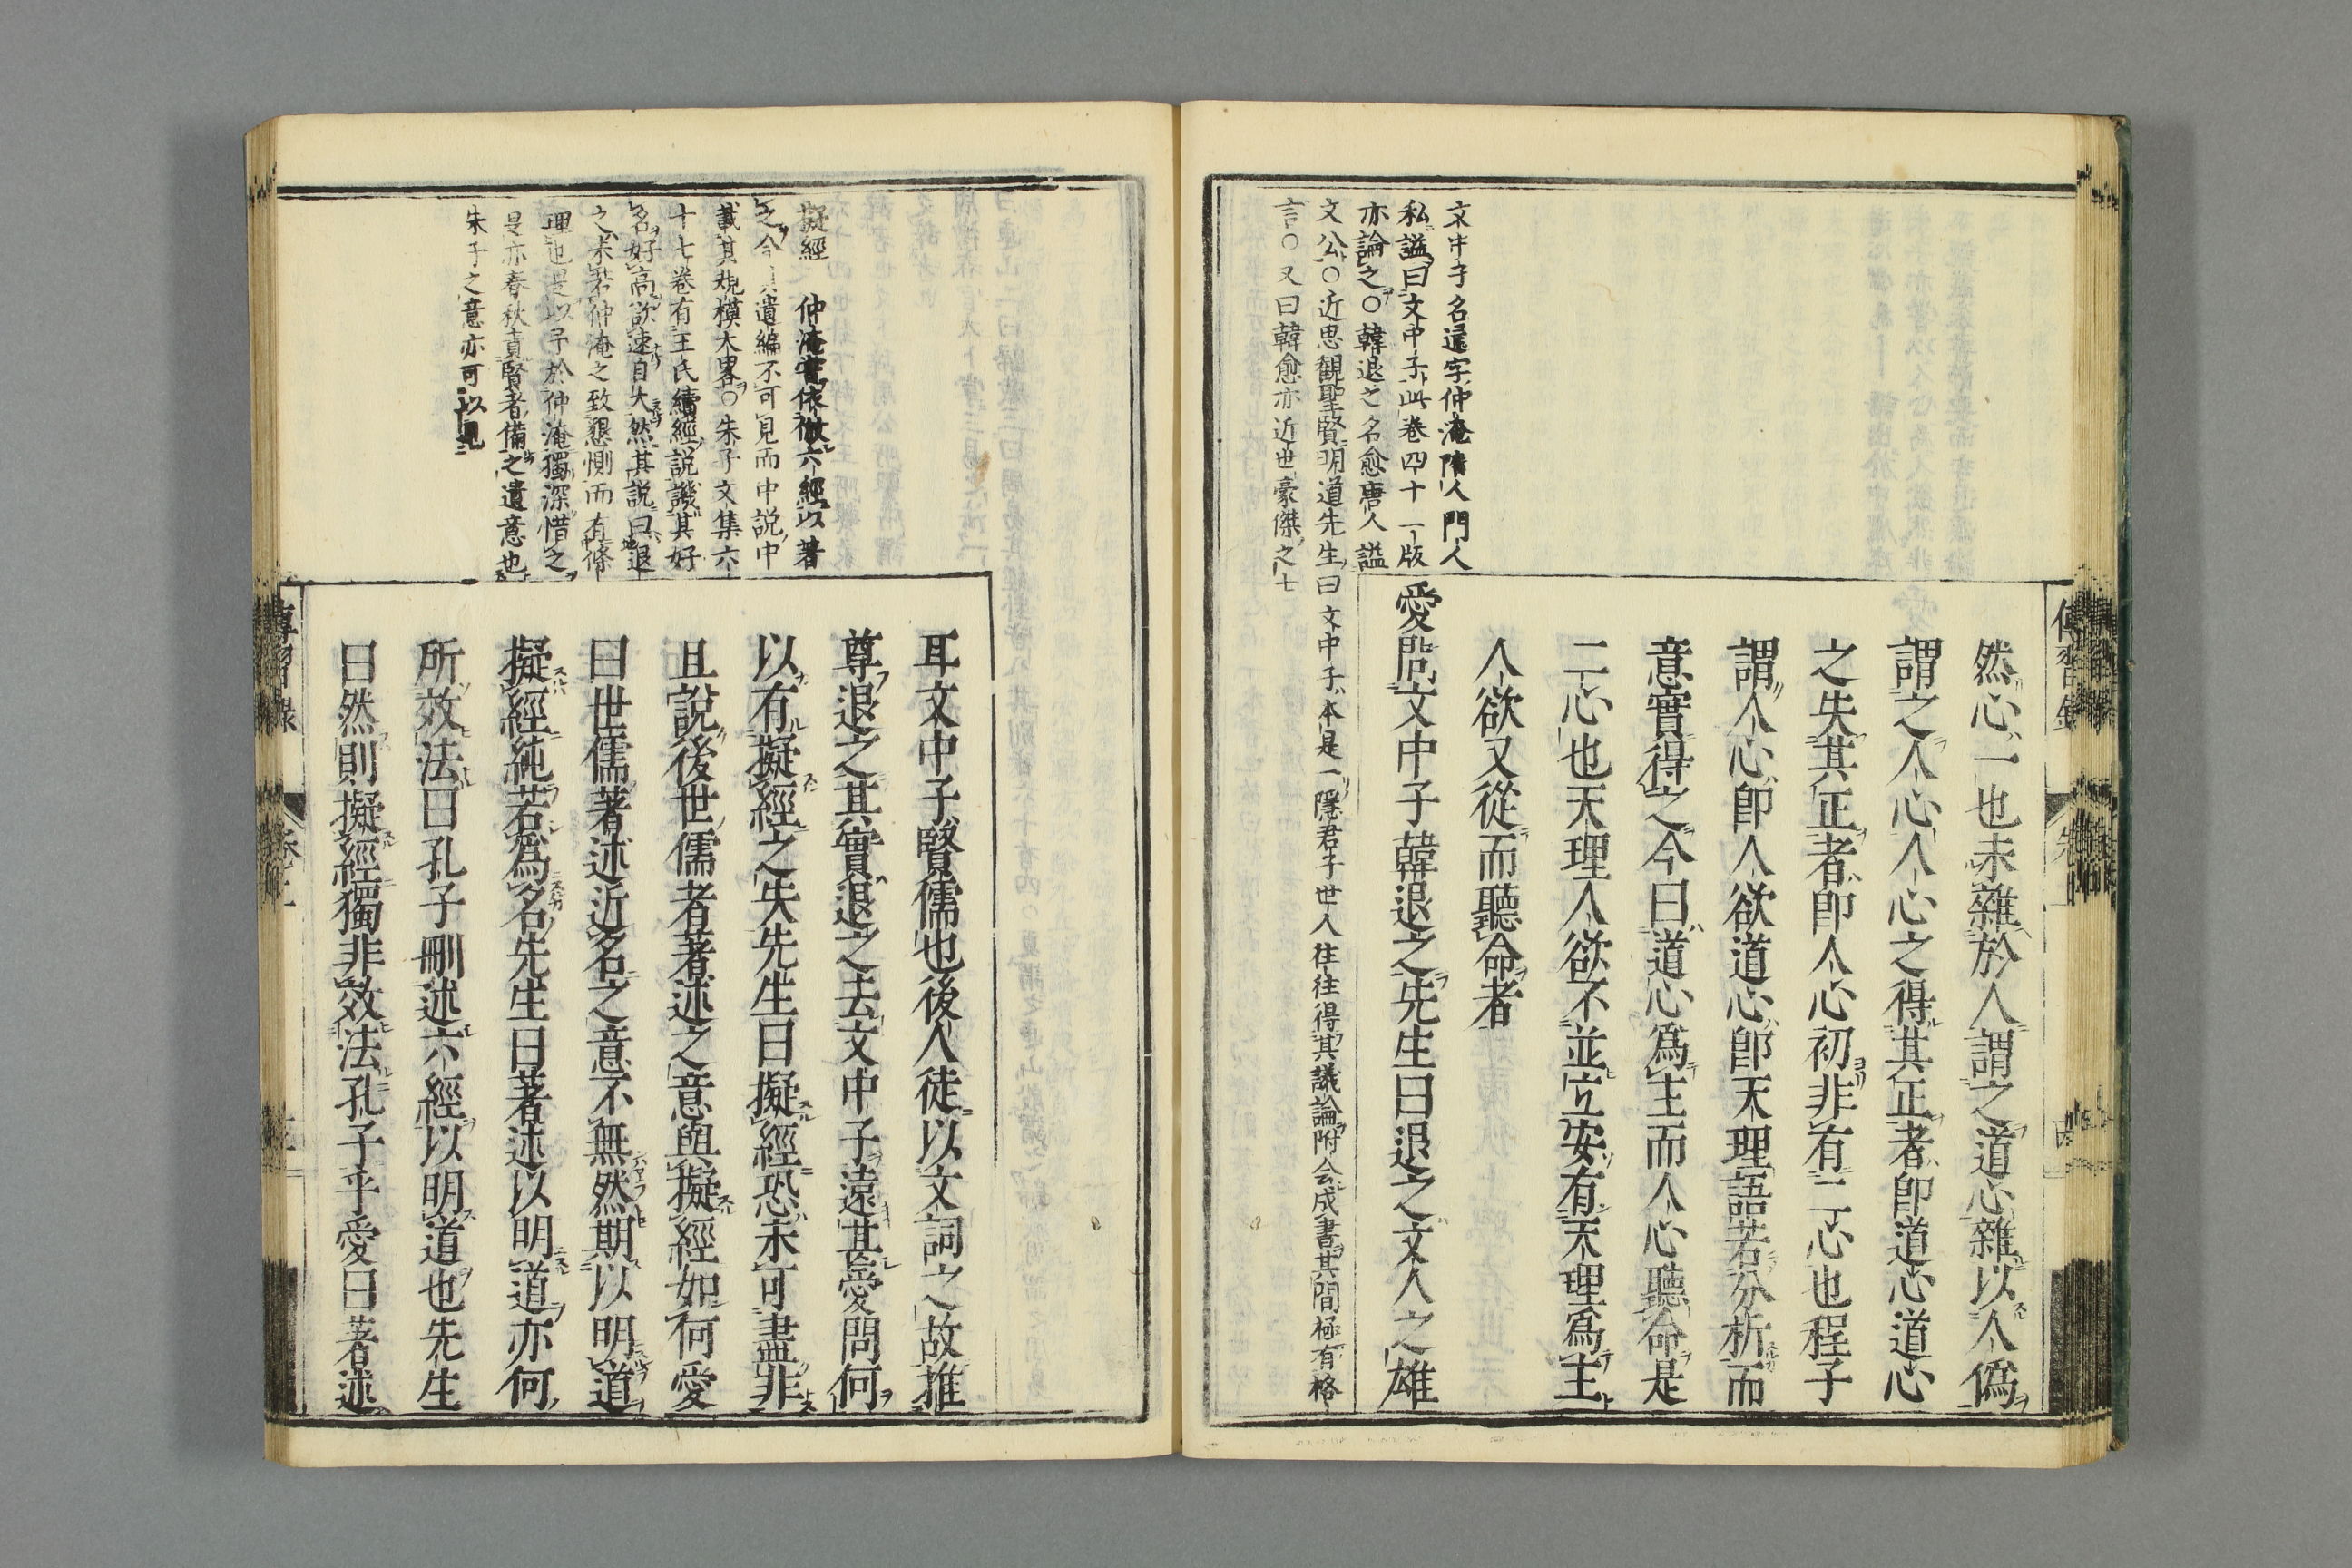 然心一也未雜於人謂之道心雜以人僞
謂之人心人心之得其正者卽道心道心
之失其正者卽人心初非有二心也程子
謂人心卽人欲道心卽天理語若分析而
意實得之今曰道心爲主而人心聽命是
二心也天理人欲不並立安有天理爲主
人欲又從而聽命者
愛問文中子韓退之先生曰退之文人之雄
文中子名通字仲淹隋人門人
私謚曰文中子此卷四十一版
亦論之○韓退之名愈唐人謚
文公○近思観聖賢明道先生曰文中子本是一隱君子世人往往得其議論附会成書其間極有格
言○又曰韓愈亦近世豪傑之士
耳文中子賢儒也後人徒以文詞之故推
尊退之其實退之去文中子遠甚愛問何
以有擬經之失先生曰擬經恐未可盡非
且說後世儒者著述之意與擬經如何愛
曰世儒著述近名之意不無然期以明道
擬經純若爲名先生曰著述以明道亦何
所效法曰孔子刪述六經以明道也先生
曰然則擬經獨非效法孔子乎愛曰著述
擬經 仲淹嘗依倣六經以著
之今 遺編不可見而中説中
載其規模大畧○朱子文集六
十七巻有王氏續經説譏其好
名好高欲速自大然其説曰退
之未若仲淹之致懇惻而有條
理也是以予於仲淹獨深惜之
是亦春秋責賢者備之遺意也
朱子之意亦可以見
傳習録
卷上